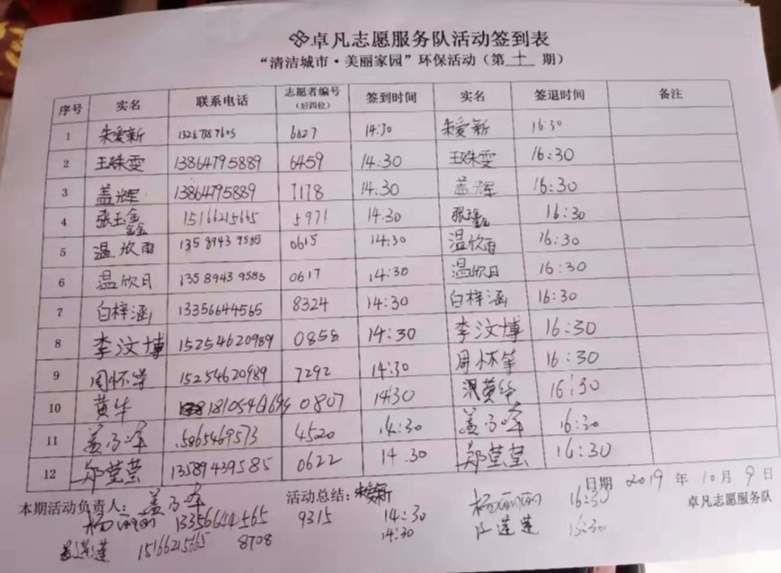 卓凡志愿服务队活动签到表
“清洁城市·美丽家园”环保活动(第 十 期)
序号 实名 联系电话 志愿者编号(后四位) 签到时间 实名 签退时间 备注
1 朱爱新 6627 14:30 朱爱新 16:30
2 王姝雯 13864795889 6459 14:30 王姝雯 16:30
3 盖辉 13864795889 7178 14.30 盖辉 16:30
4 张玉鑫 15166215665 5971 14.30 16:30
5 温欣雨 13589439585 0615 14:30 温欣雨 16:30
6 温欣日 13589439585 0617 14:30 温欣日 16:30
7 白梓涵 13356644565 8324 14:30 白梓涵 16:30
8 李汶博 15254620989 0858 14:30 李汶博 16:30
9 周怀笨 15254620989 7292 14:30 周怀笨 16:30
10 黄华 0807 14:30 16:30
11 5865469573 4520 14:30 16:30
12 郑莹莹 13589439585 0622 14.30 郑莹莹 16:30
日期 2019 年 10 月 9 日
本期活动负责人: 活动总结: 朱爱新 卓凡志愿服务队
杨丽丽 13356644565 9315 14:30 杨丽丽 16:30
15166215665 8708 14:30 莲莲 16:30